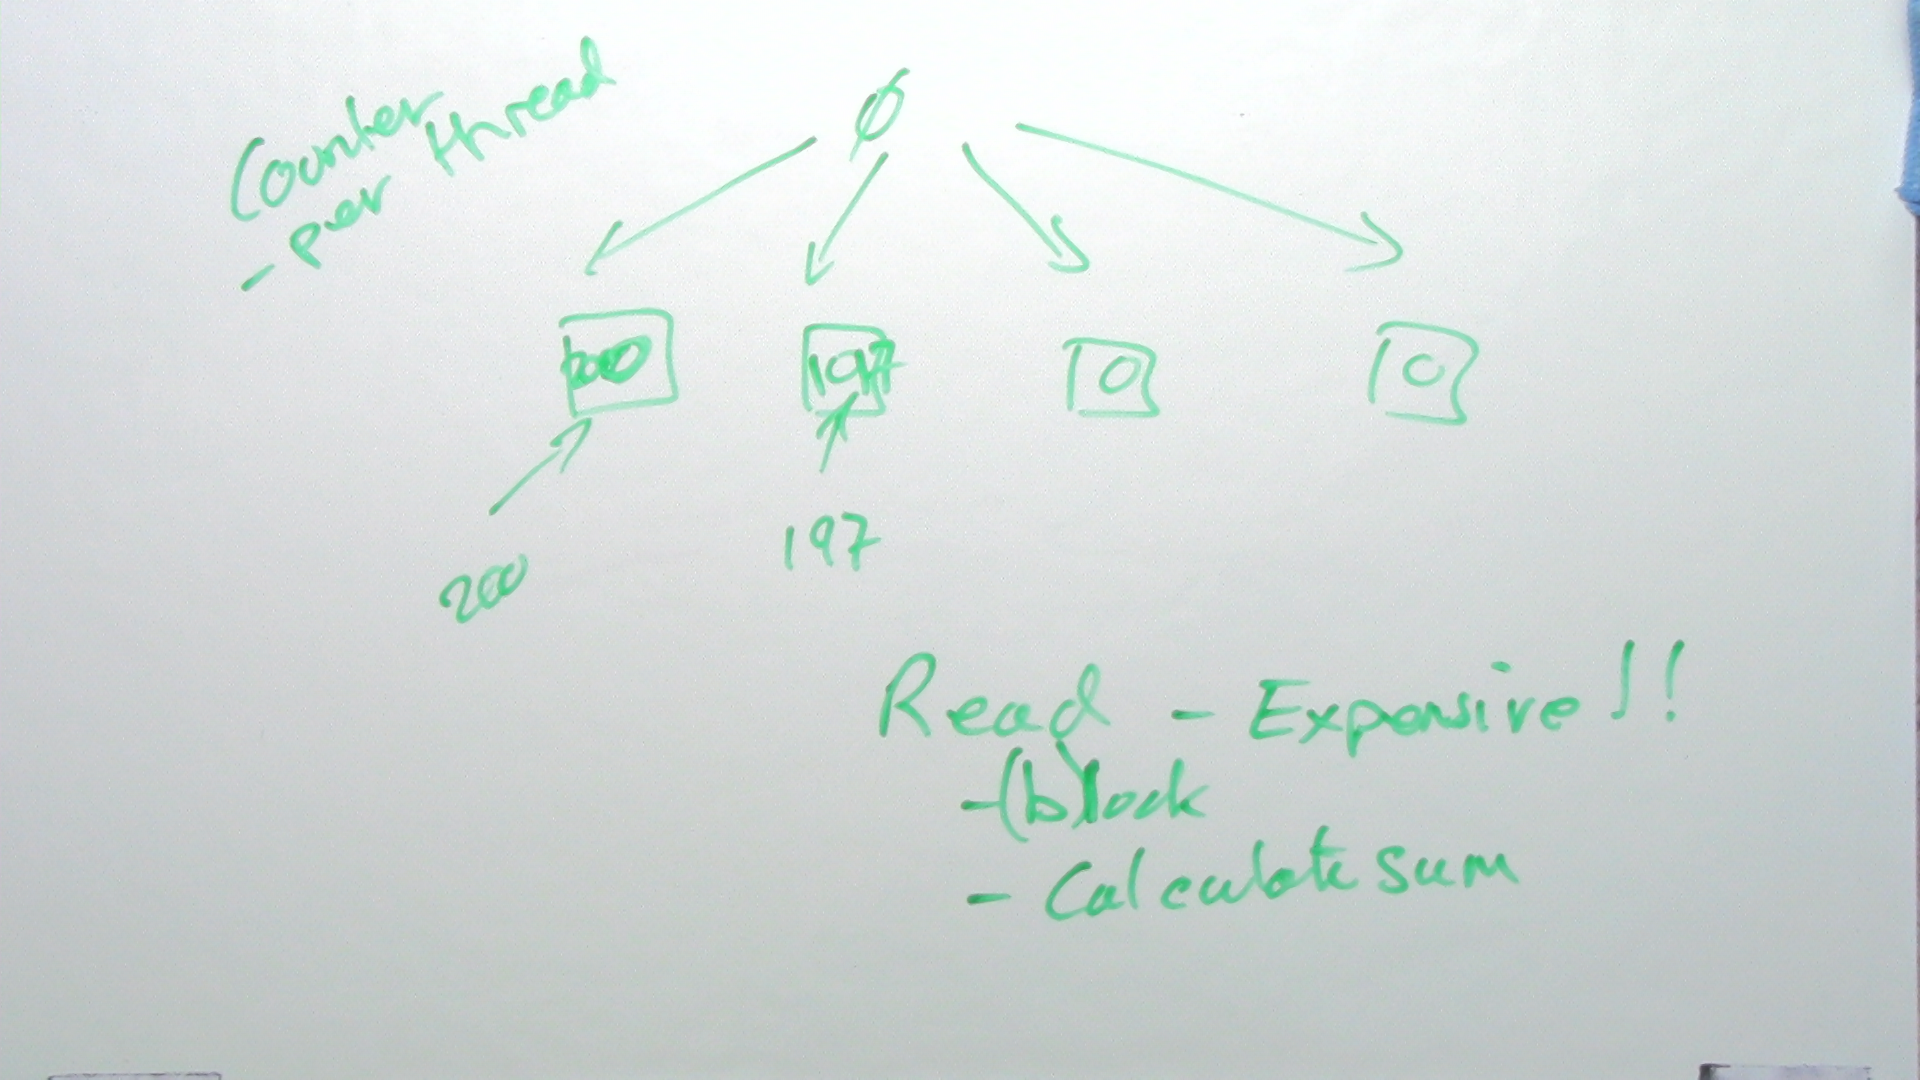 Counter
- per thread
Ø
200 197 0 0
200
197
Read - Expensive!!
- (b)lock
- Calculate sum